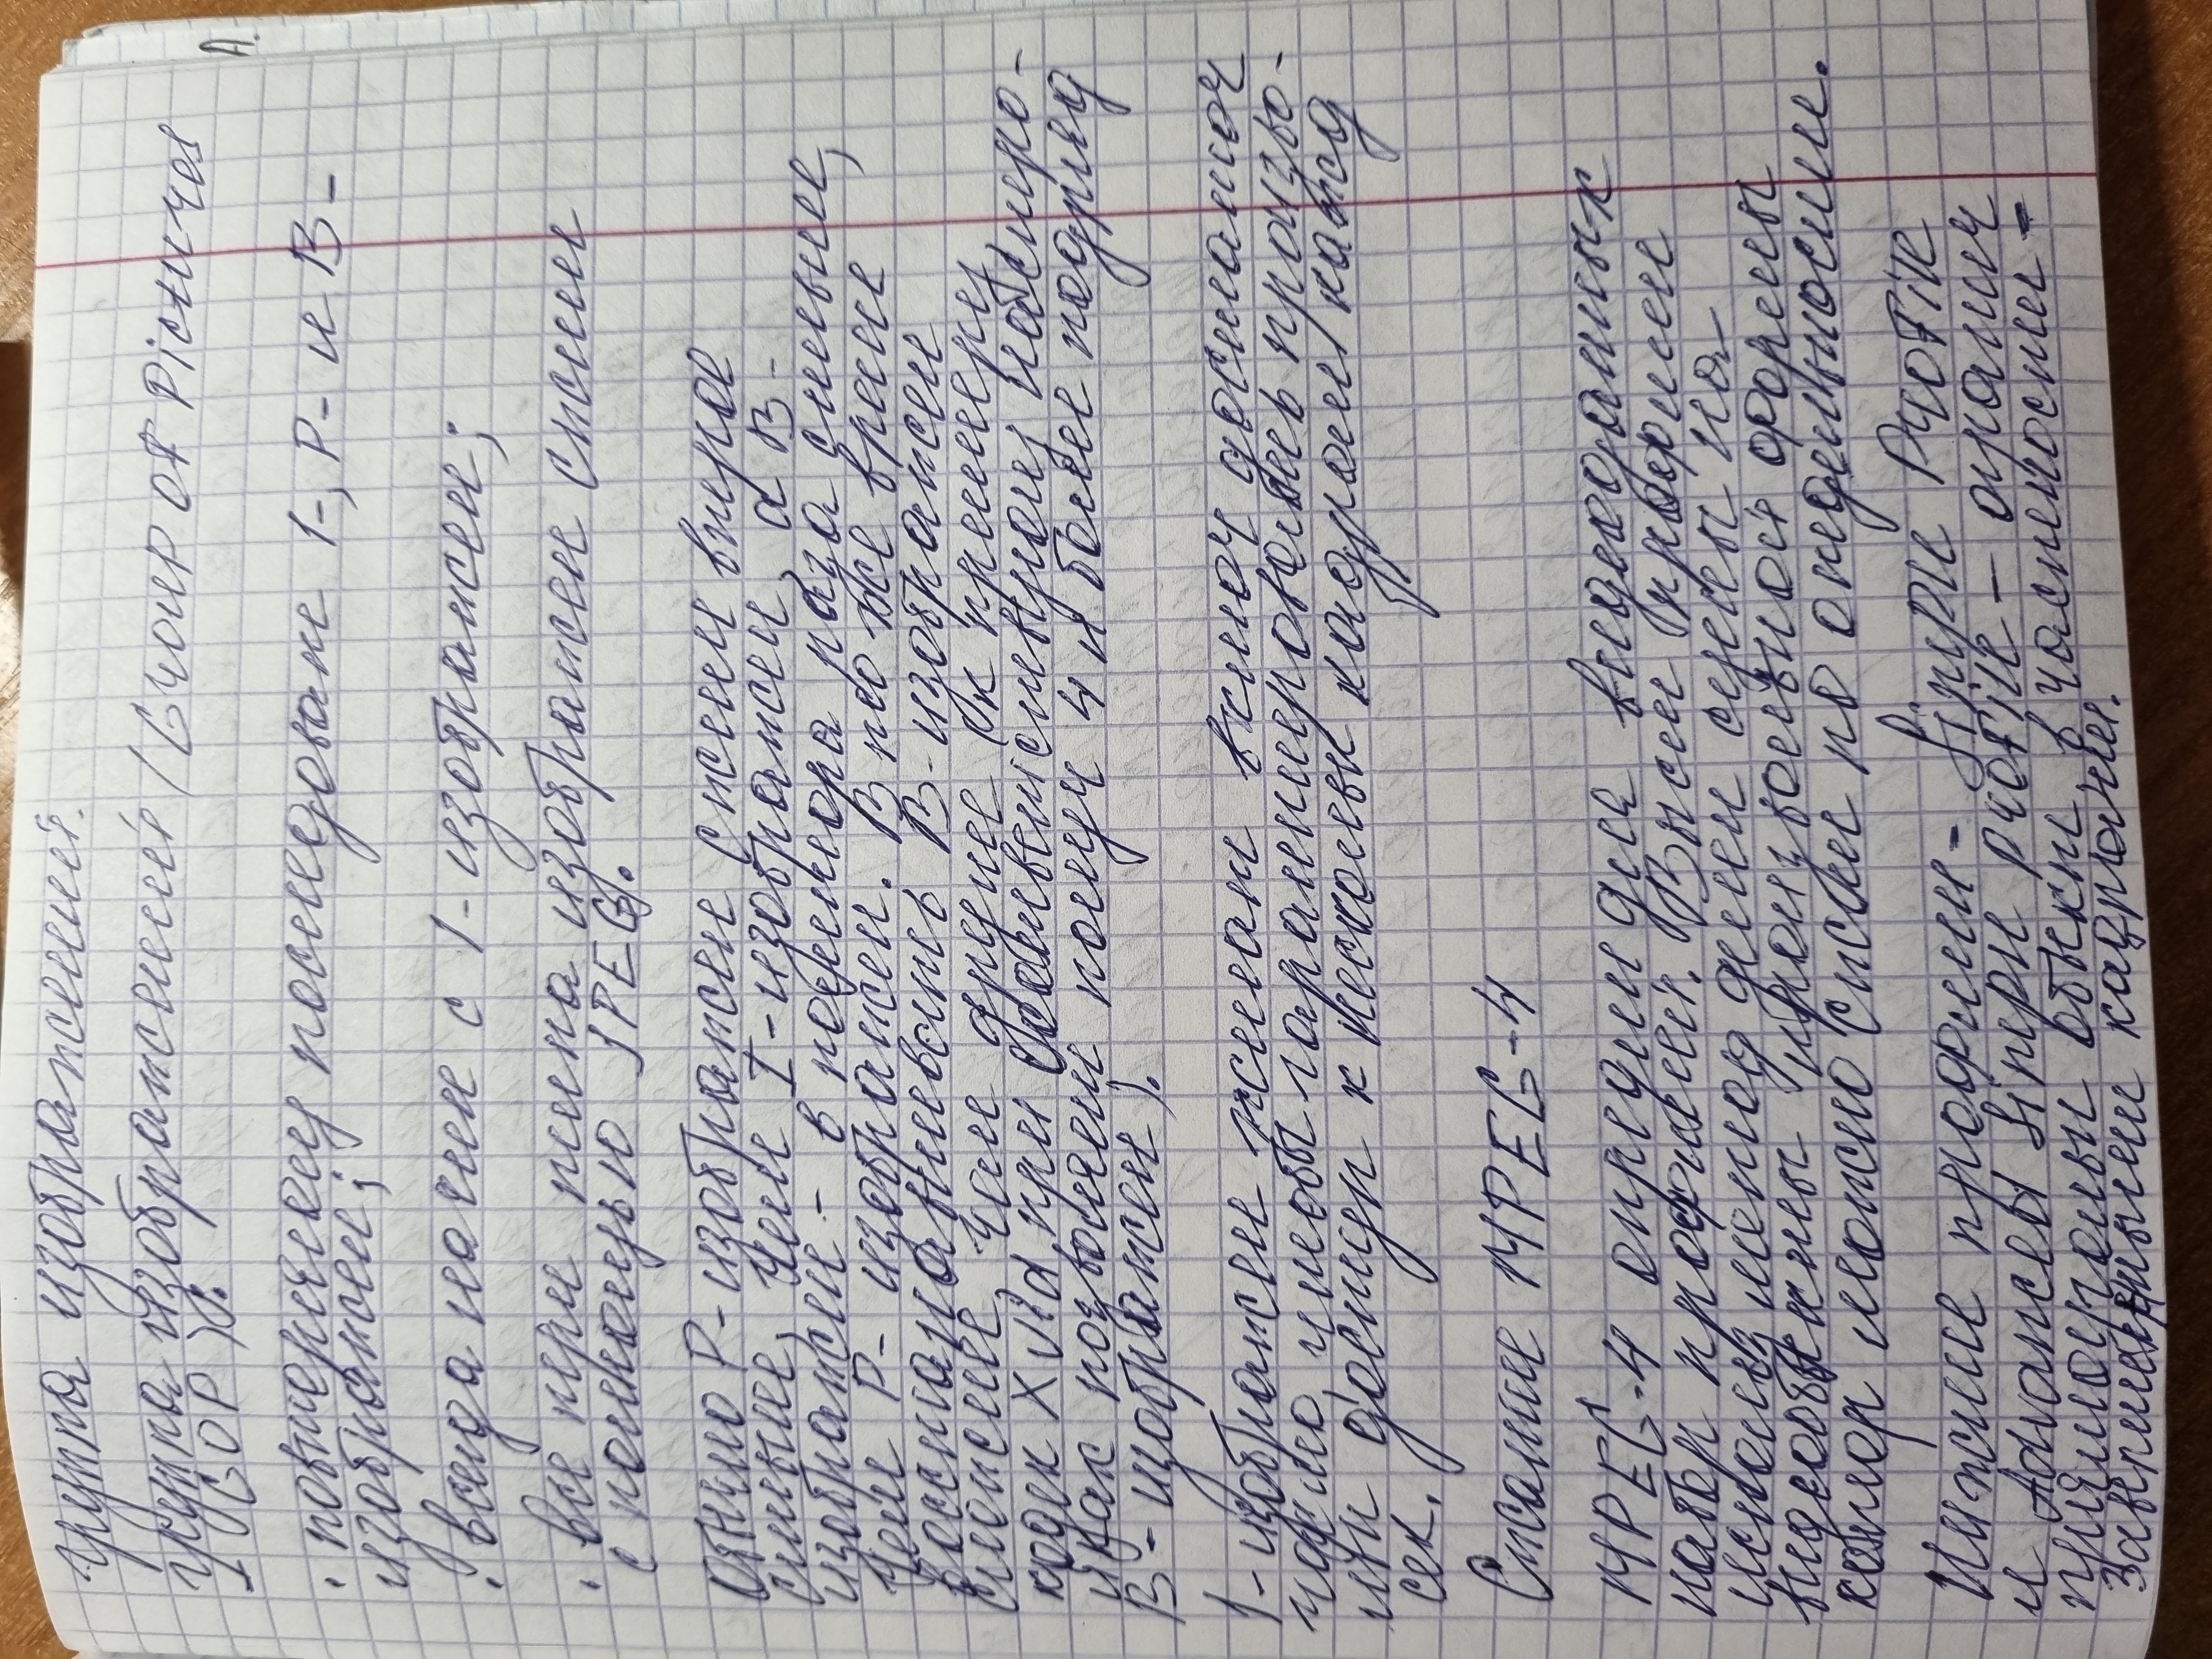 группа изображений.
группа изображений (Group of Pictures
I GOP):
• повторяющ последоват I-, P- и B-
изображен;
• всегда начин с I-изображен;
• все пери типа изображен сжим
с помощью JPEG.
Обычно P-изображен сжим втрое
сильне, чем I-изображен, а B-
изображен - в полтора раза сильнее,
чем P- изображен. В то же время
восстанавливать B-изображен
сложнее, чем другие (к примеру,
кодек Xvid при соответствующ настро-
йках позволяет получ 4 и более подряд
B-изображен).
I-изображен желат включ достаточ
часто, чтобы гарантировать произво-
льн доступ к нескольк кадрам кажд
сек.
Сжатие MPEG-4
MPEG-4 определ для видеоданных
набор профилей. Высш профили
использ метод делен сцены на
видеообъкты произвольной формы
котор можно сжат по отдельности.
Нижние профили - Simple Profile
и Advanced Simple Profile - огранич
прямоугольн объкт, в частности -
кадрами.